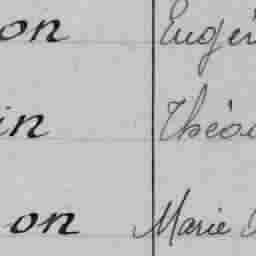 on Eugé
in Théo
on Marie